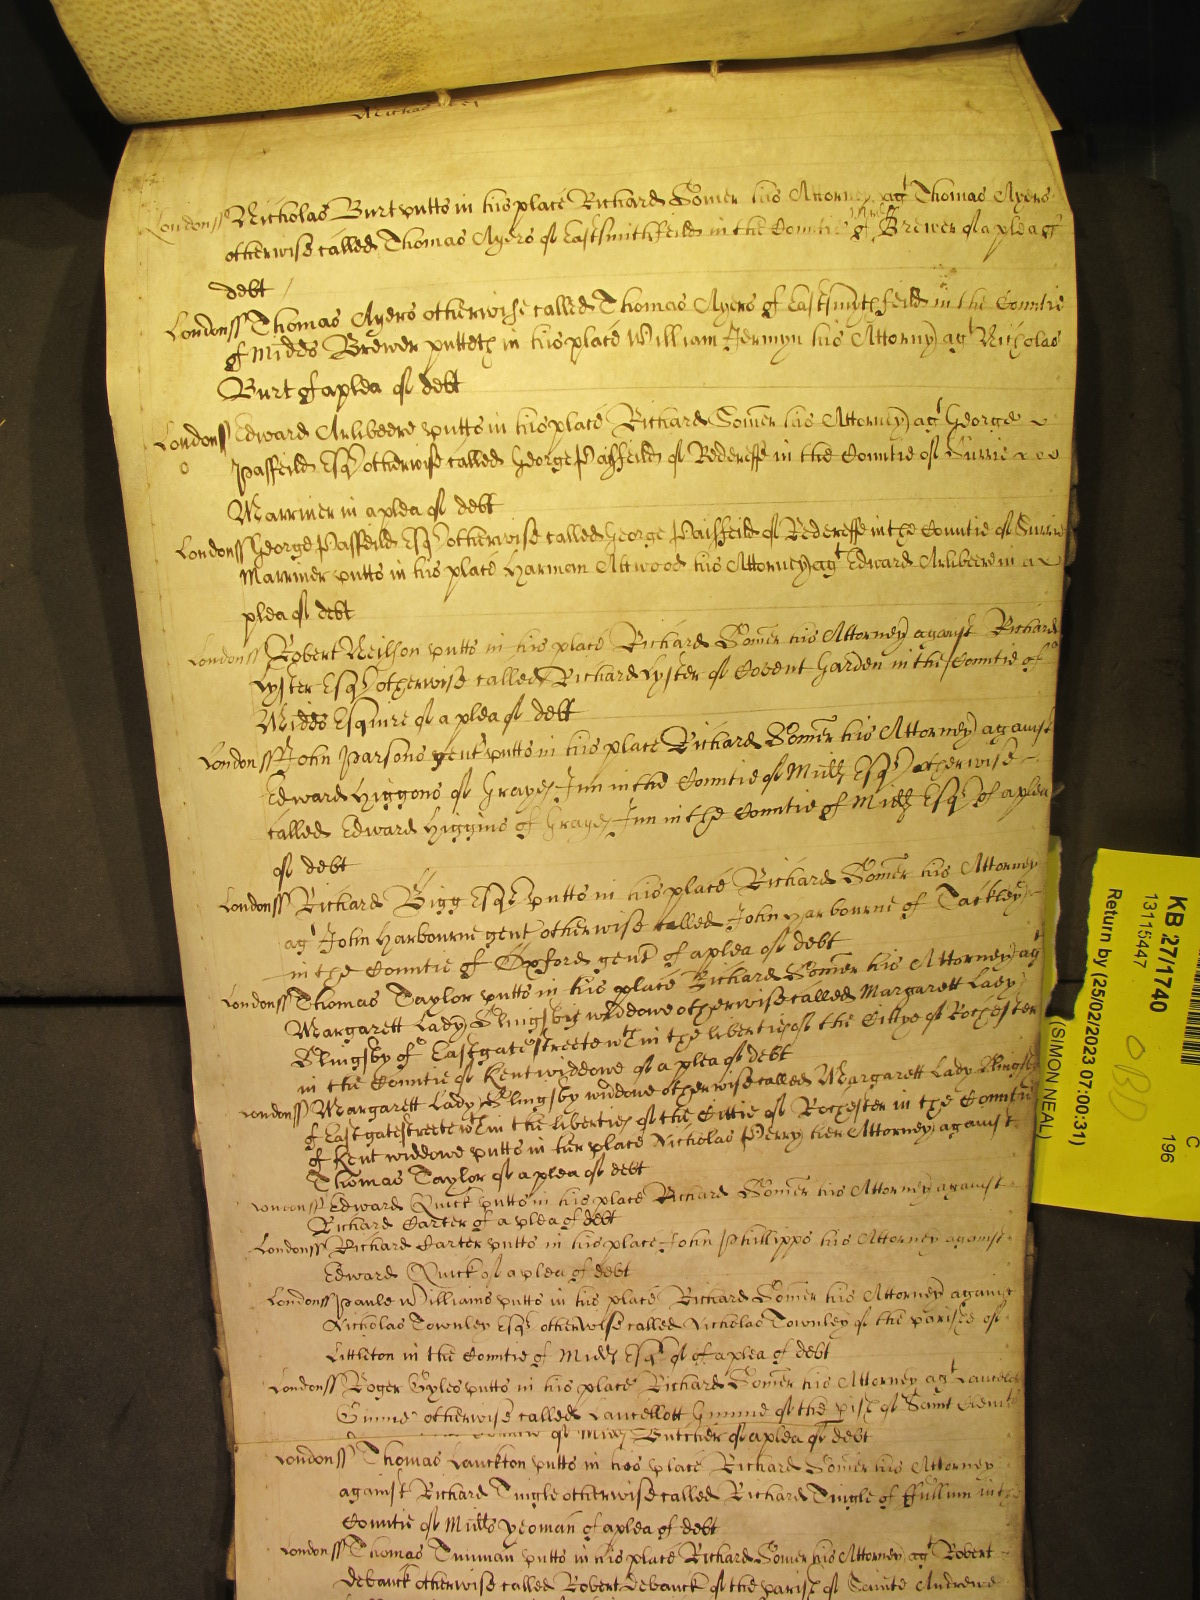 Londonss Nicholas Burt putts in his place Richard Somer his Attorney agt Thomas Ayers
otherwise called Thomas Ayers of Eastsmithfeild in the Countie of Midds Brewer of a plea of
debt
Londonss Thomas Ayers otherwise called Thomas Ayers of Eastsmythfeild in the Countie
of Midds Brewer putteth in his place William Jermyn his Attorny agt Nicholas
Burt of a plea of debt
Londonss Edward Arlibeere putts in his place Richard Somer his Attorney agt George
Passeild Esqr otherwise called George Passfeild of Redereffe in the Countie of Surrie
Marriner in a plea of debt
Londonss George Passeild Esqr otherwise called George Passfeild of Redereffe in the Countie of Surrie
Marriner putts in his place Harman Attwood his Attorney agt Edward Arlibeere in a
plea of debt
Londonss Robert Neilson putts in his place Richard Somer his Attorney against Richard
Lyster Esqr otherwise called Richard Lyster of Covent Garden in the Countie of
Midds Esquire of a plea of debt
Londonss John Parsons gent putts in his place Richard Somer his Attorney against
Edward Higgons of Grayes Inn in the Countie of Midds Esqr otherwise
called Edward Higgins of Grayes Inn in the Countie of Midds Esqr of a plea
of debt
Londonss Richard Bigg Esqr putts in his place Richard Somer his Attorney
agt John Harbourne gent otherwise called John Harbourne of Tackley
in the Countie of Oxford gent of a plea of debt
Londonss Thomas Taylor putts in his place Richard Somer his Attorney agt
Margarett Lady Slingsby widdowe otherwise called Margarett Lady
Slingsby of Eastgate streete wthin the liberties of the Cittye of Rochester
in the Countie of Kent widdowe of a plea of debt
Londonss Margarett Lady Slingsby widdowe otherwise called Margarett Lady Slingsby
of Eastgatestreete wthin the liberties of the Cittie of Rochester in the Countie
of Kent widdowe putts in her place Nicholas Perry her Attorney against
Thomas Taylor of a plea of debt
Londonss Edward Quick putts in his place Richard Somer his Attorney against
Richard Carter of a plea of debt
Londonss Richard Carter putts in his place John Phillipps his Attorney against
Edward Quick of a plea of debt
Londonss Paule Williams putts in his place Richard Somer his Attorney against
Nicholas Townley Esqr otherwise called Nicholas Townley of the parishe of
Littleton in the Countie of Midds Esqr of a plea of debt
Londonss Roger Gyles putts in his place Richard Somer his Attorney agt Lancelott
Gunne otherwise called Lancellott Gunne of the pish of Saint
of Midds Butcher of a plea of debt
Londonss Thomas Lanckton putts in his place Richard Somer his Attorney
against Richard Tingle otherwise called Richard Tingle of ffullum in the
Countie of Midds yeoman of a plea of debt
Londonss Thomas Tinman putts in his place Richard Somer his Attorney agt Robert
Debanck otherwise called Robert Debanck of the parish of Sainte Andrewe
KB 27/1740
13115447
Return by (25/02/2023 07:00:31)
(SIMON NEAL)
C
196